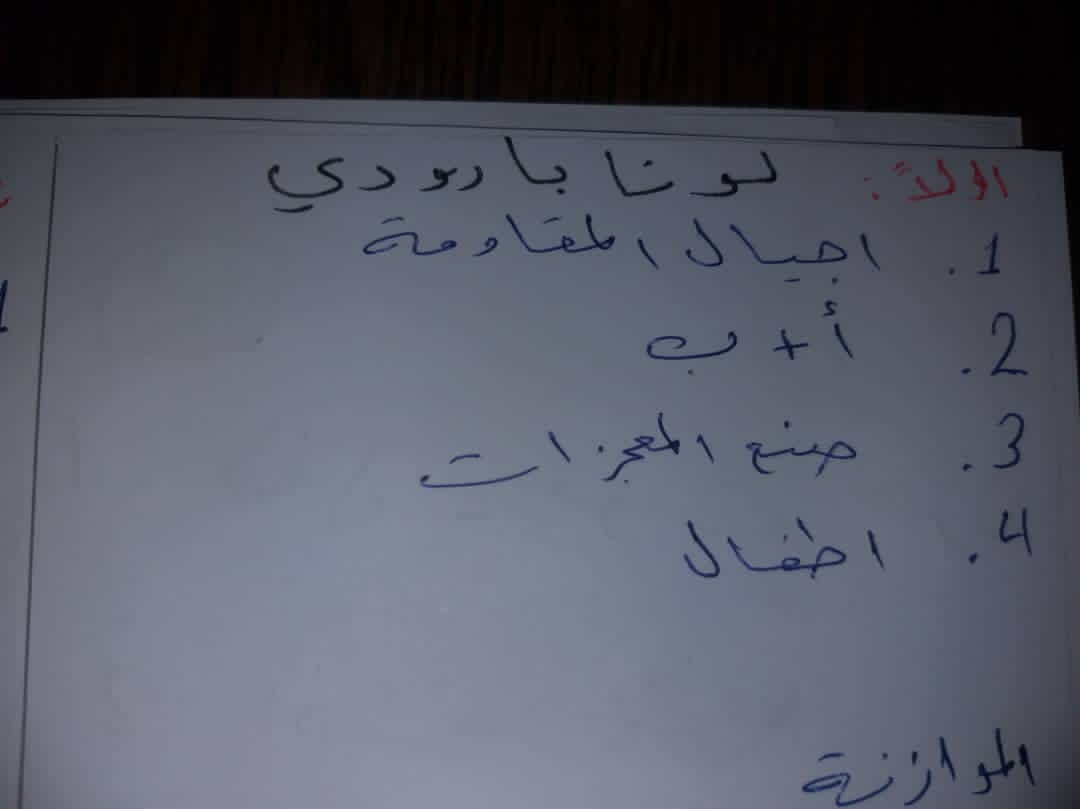 اولاً: لونا بارودي
1. اجيال المقاومة
2. أ + ب
3. صنع المعجزات
4. اطفال
الموازنة